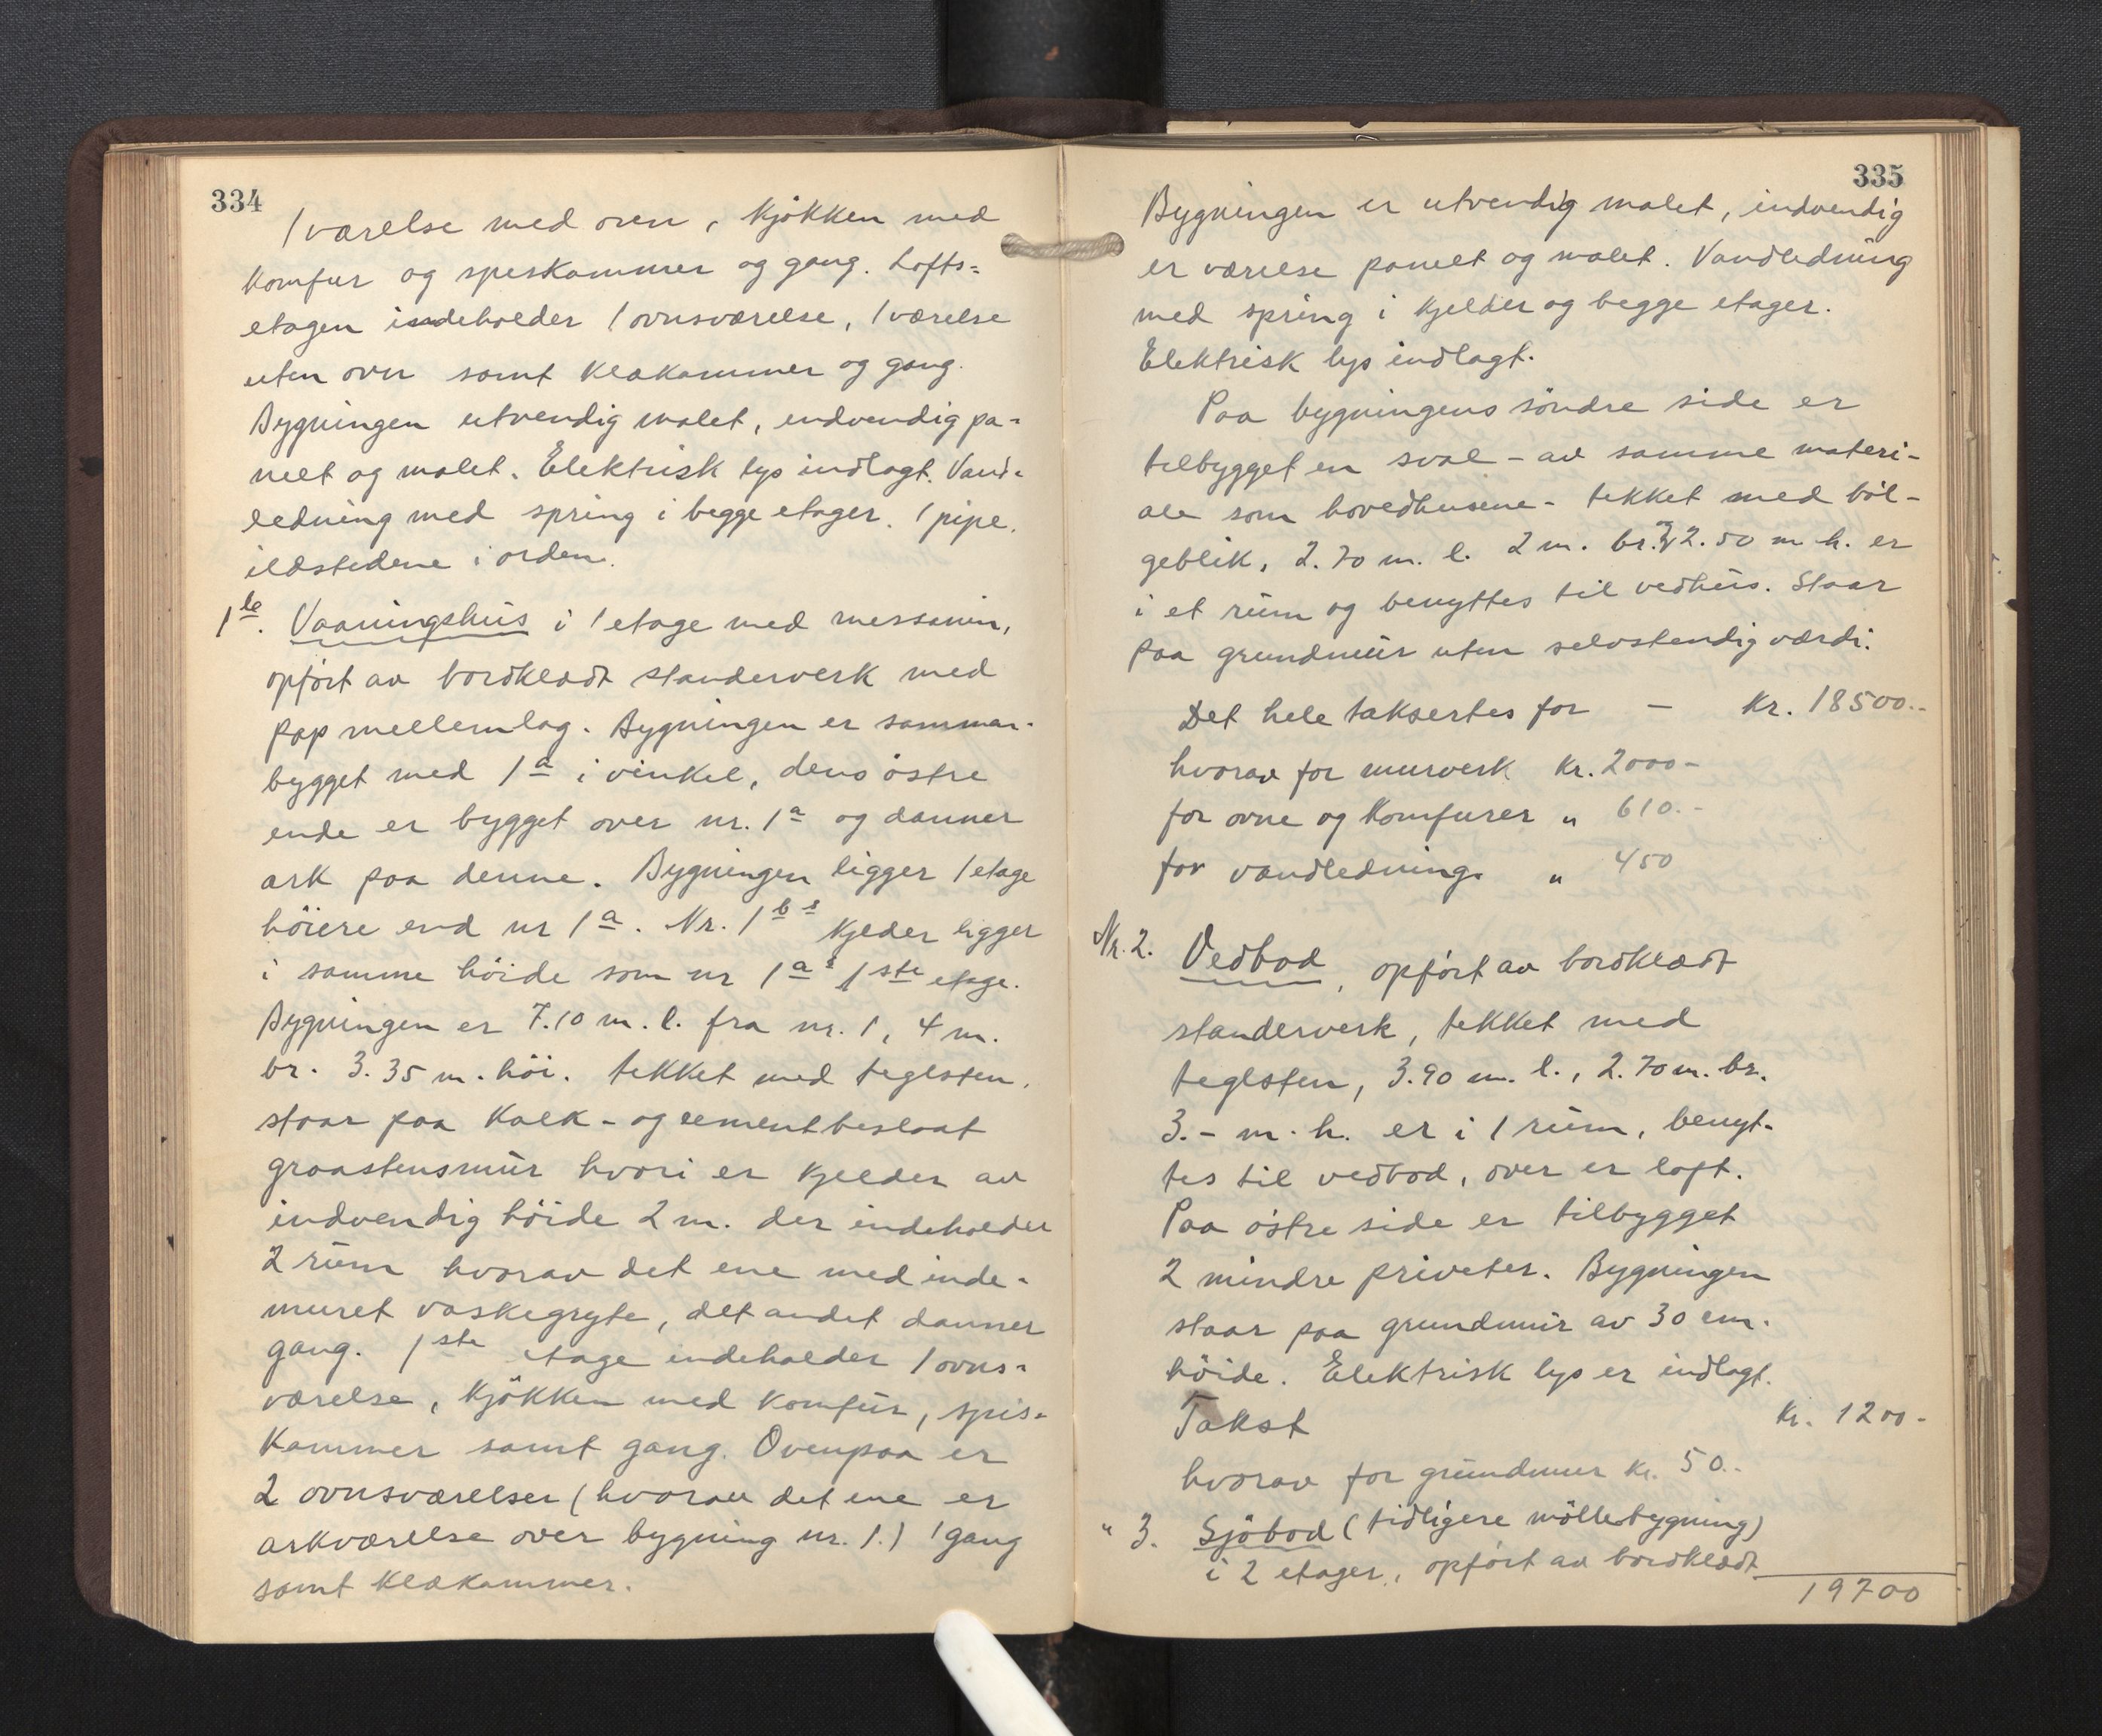 334
1 værelse med oven, kjøkken med
komfur og speskammer og gang. Lofts=
etagen indeholder 1 ovnsværelse, 1 værelse
uten ovn samt klækammer og gang.
Bygningen utvendig malet, indvendig pa-
nelt og malet. Elektrisk lys indlagt. Vand-
ledning med spring i begge etager. 1 pipe.
ildstedene i orden.
1 b. Vaaningshus i 1 etage med messanin,
opført av bordklædt standerverk med
pap mellemlag. Bygningen er sammen-
bygget med 1 a i vinkel, dens østre
ende er bygget over nr. 1 a og danner
ark paa denne. Bygningen ligger 1 etage
høiere end nr 1 a. Nr. 1 b s kjelder ligger
i samme høide som nr 1 a s 1ste etage.
Bygningen er 7.10 m. l. fra nr. 1, 4 m.
br. 3.35 m. høi. tekket med teglsten,
staar paa kalk- og cementbeslaat
graastensmur hvori er kjelder av
indvendig høide 2 m. der indeholder
2 rum hvorav det ene med inde-
muret vaskegryte, det andet danner
gang. 1ste etage indeholder 1 ovns-
værelse, kjøkken med komfur, spis-
kammer samt gang. Ovenpaa er
2 ovnsværelser (hvorav det ene er
arkværelse over bygning nr. 1.) 1 gang
samt klækammer.
335
Bygningen er utvendig malet, indvendig
er værelse panelt og malet. Vandledning
med spring i kjelder og begge etager.
Elektrisk lys indlagt.
Paa bygningens søndre side er
tilbygget en sval - av samme materi-
ale som hovedhusene - tekket med bøl-
geblik, 2.70 m. l. 2 m. br. og 2.50 m h. er
i et rum og benyttes til vedhus. Staar
paa grundmur uten selvstendig værdi.
Det hele taksertes for - Kr. 18500.-
hvorav for murverk Kr. 2000-
for ovne og komfurer " 610.-
for vandledning. " 450
Nr. 2. Vedbod, opført av bordklædt
standerverk, tekket med
teglsten, 3.90 m. l., 2.70 m. br.
3.- m. h. er i 1 rum, benyt-
tes til vedbod, over er loft.
Paa østre side er tilbygget
2 mindre priveter. Bygningen
staar paa grundmur av 30 cm.
høide. Elektrisk lys er indlagt.
Takst Kr. 1200-
hvorav for grundmur Kr. 50.-
" 3. Sjøbod (tidligere møllebygning)
i 2 etager, opført av bordklædt
19700